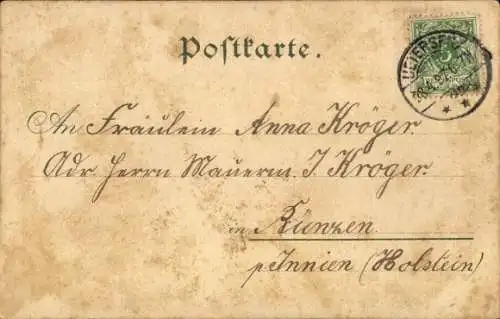 Postkarte.
UETERSEN
5
An Fräulein Anna Kröger.
Adr Herrn Mauerm. J. Kröger.
in Rünzen
p Innien (Holstein)